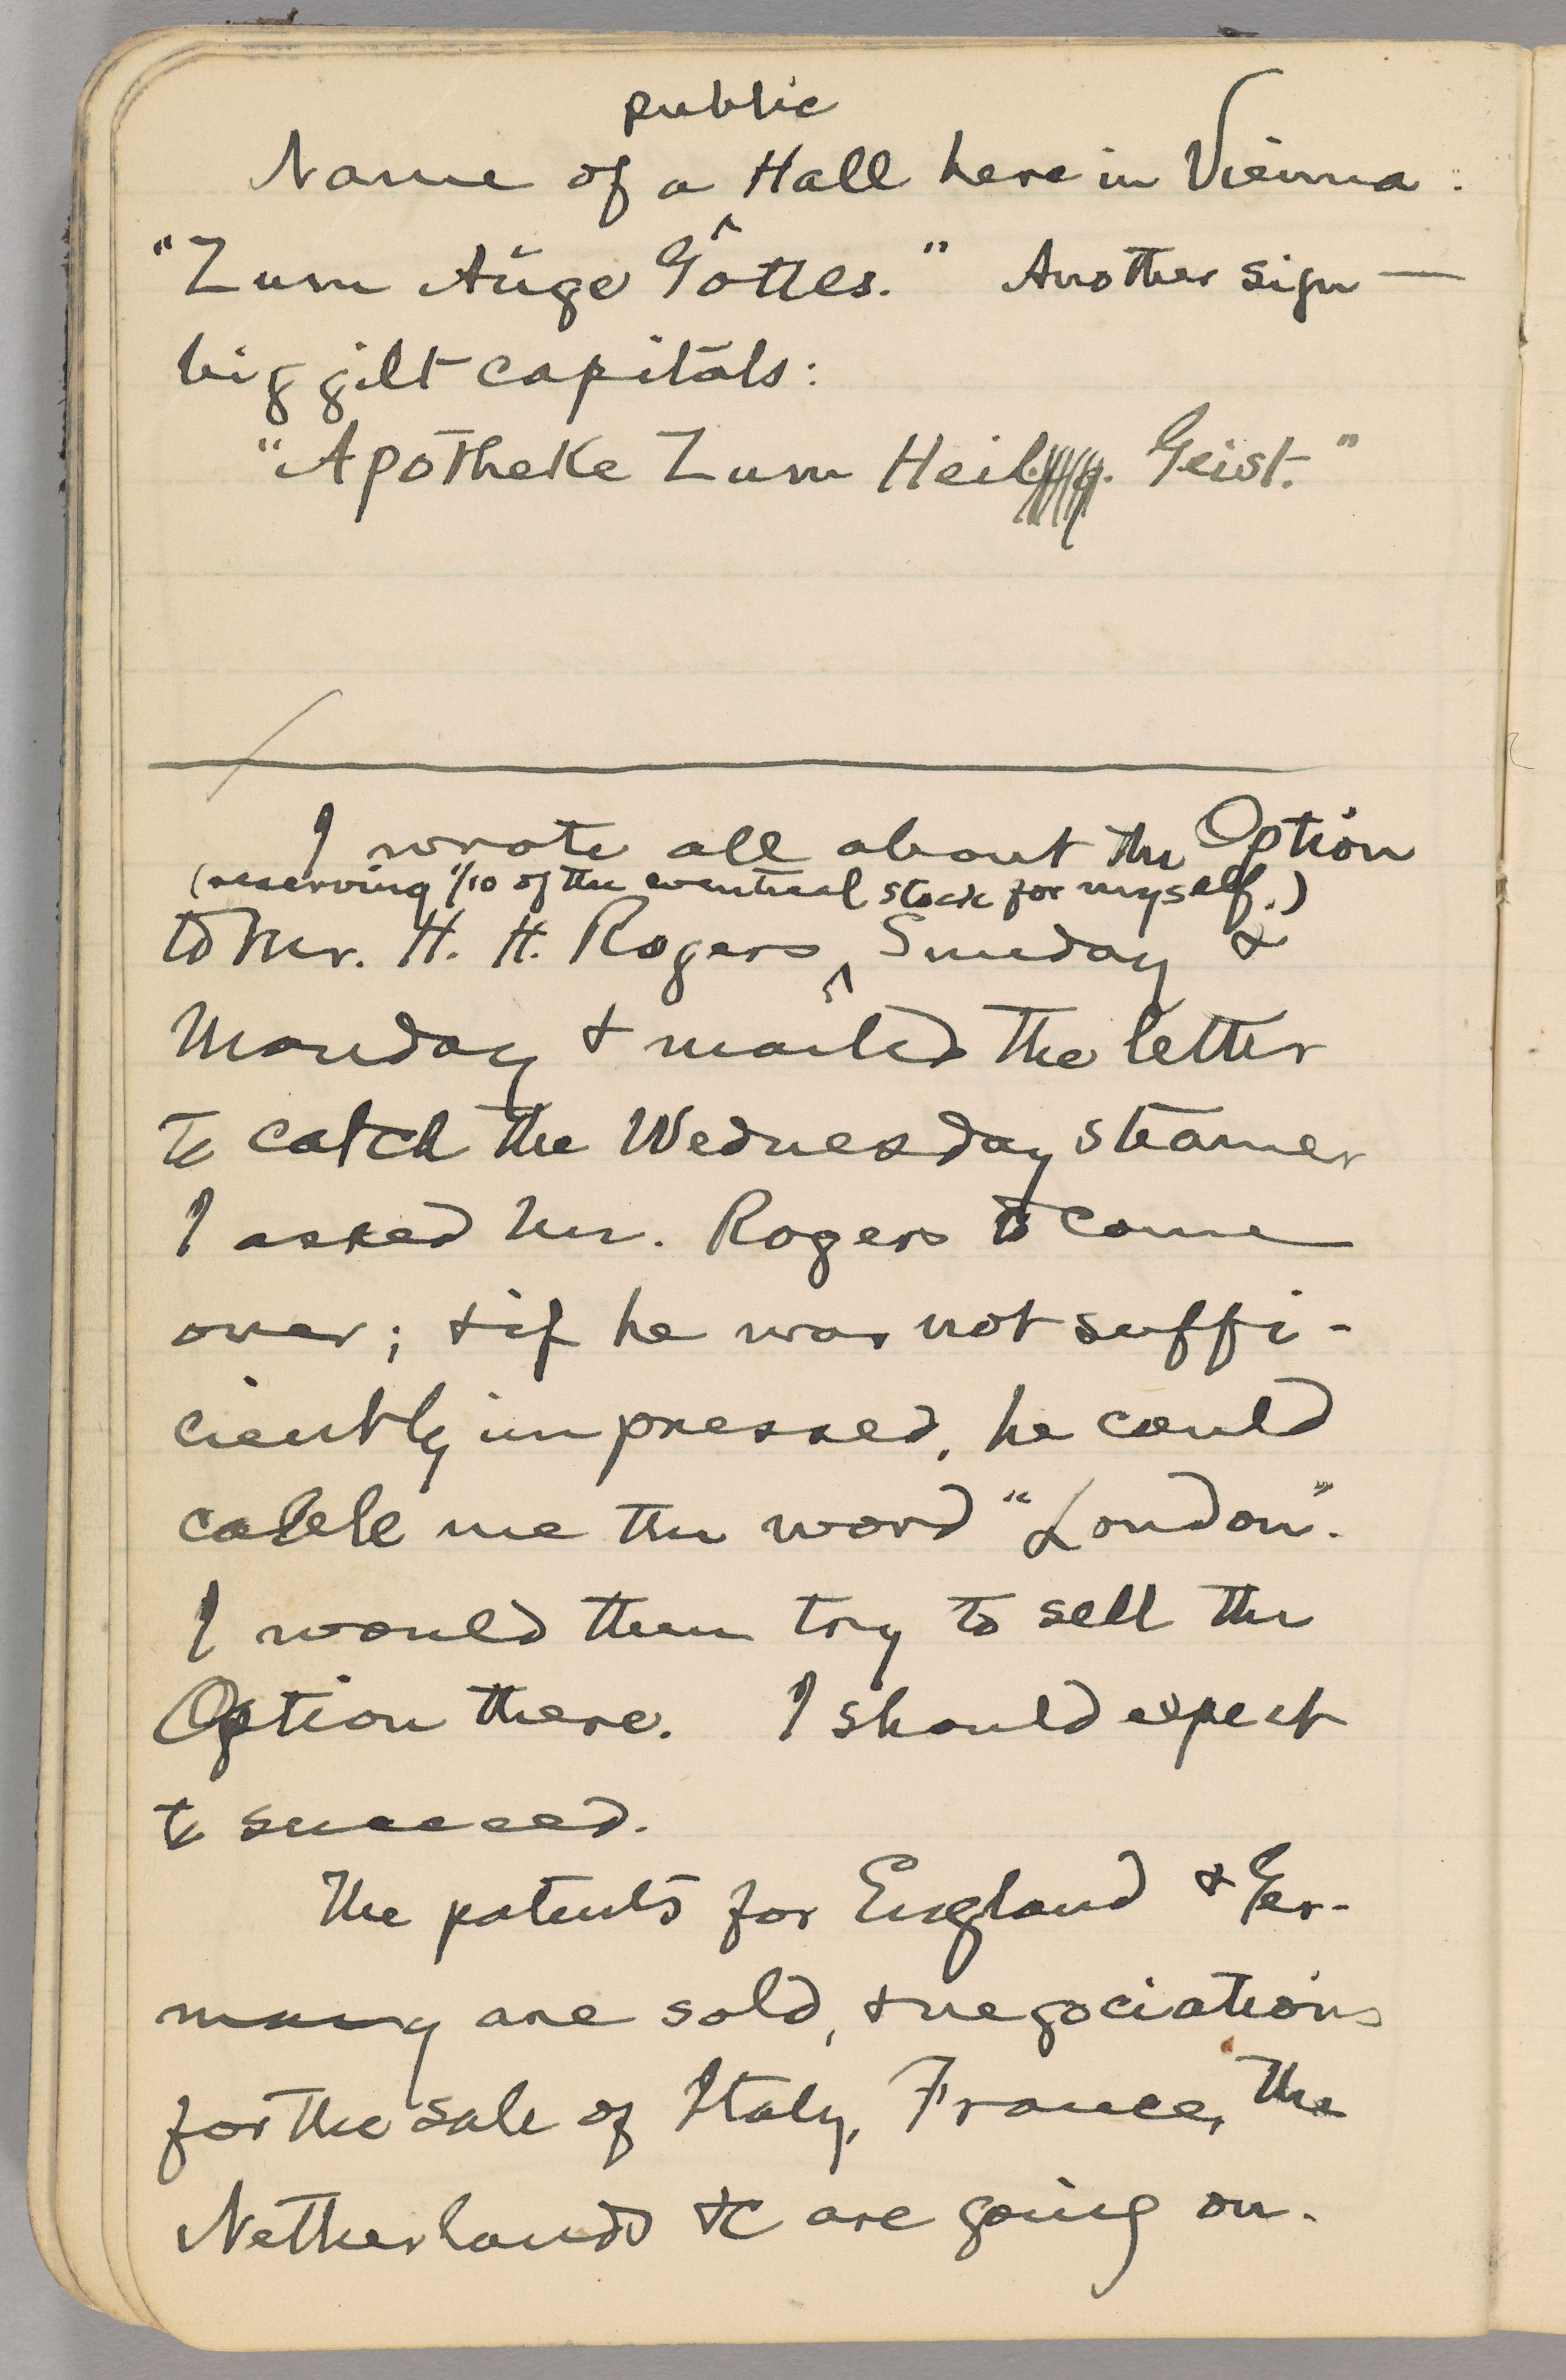 public
Name of a Hall here in Vienna:
"Zum Auge Gottes." Another sign —
big gilt capitals:
"Apotheke Zum Heilg. Geist."
I wrote all about the Option
(reserving 1/10 of the eventual stock for myself.)
to Mr. H. H. Rogers ^ Sunday &
Monday & mailed the letter
to catch the Wednesday steamer
I asked Mr. Rogers to come
over; & if he was not suffi-
ciently impressed, he could
cable me the word "London".
I would then try to sell the
Option there. I should expect
to succeed.
The patents for England & Ger-
many are sold, & negociations
for the sale of Italy, France, the
Netherlands &c are going on.